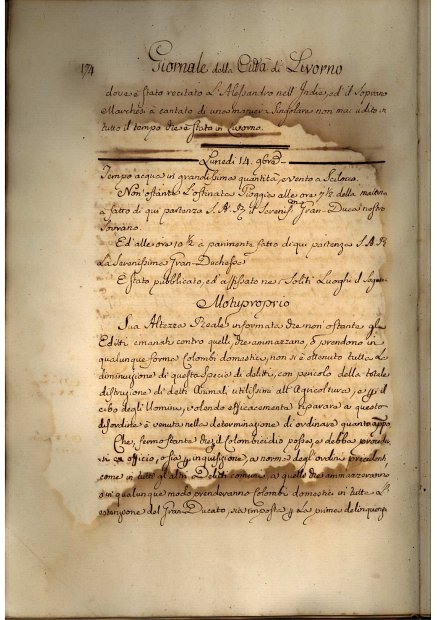 174 Giornale della Città di Livorno
dove è stato recitato L'Alessandro nell'Indie, ed il Soprano
Marchesi à cantato di una maniera Singolare non mai udito in
tutto il tempo che è stato in Livorno.
Lunedì 14. 9bre
Tempo acqua in grandissima quantità, e vento a Scilocco.
Non'ostante L'ostinata Pioggia alle ore 7½ della mattina
à fatto di qui partenza S.A.R. il Sereniss.mo Gran-Duca nostro
Sovrano.
Ed'alle ore 10½ à parimente fatto di qui partenza S.A.R.
La Serenissima Gran-Duchessa
È stato pubblicato, ed'affissato ne Soliti Luoghi il Seguente
Motuproprio
Sua Altezza Reale informata che non'ostante gli
Editti emanati contro quelli che ammazzano, ò prendono in
qualunque forma Colombi domestici, non si è ottenuto tutta La
diminuzione di questa Specie di delitti, con pericolo della totale
distruzione di detti Animali utilissimi all'Agricoltura, e il
cibo degli Uomini, volendo efficacemente riparare a questo
disordine è venuta nella determinazione di ordinare quanto appo
Che, ferma stante che il Colombicidio possa, e debba
officio, o sia inquisizione, a norma degl'ordini
come in tutti gl'altri Delitti comuni, a quelli che ammazzeranno
ò in qualunque modo prenderanno Colombi domestici in tutta La
estensione del Gran-Ducato, sia imposta La prima delinquenza